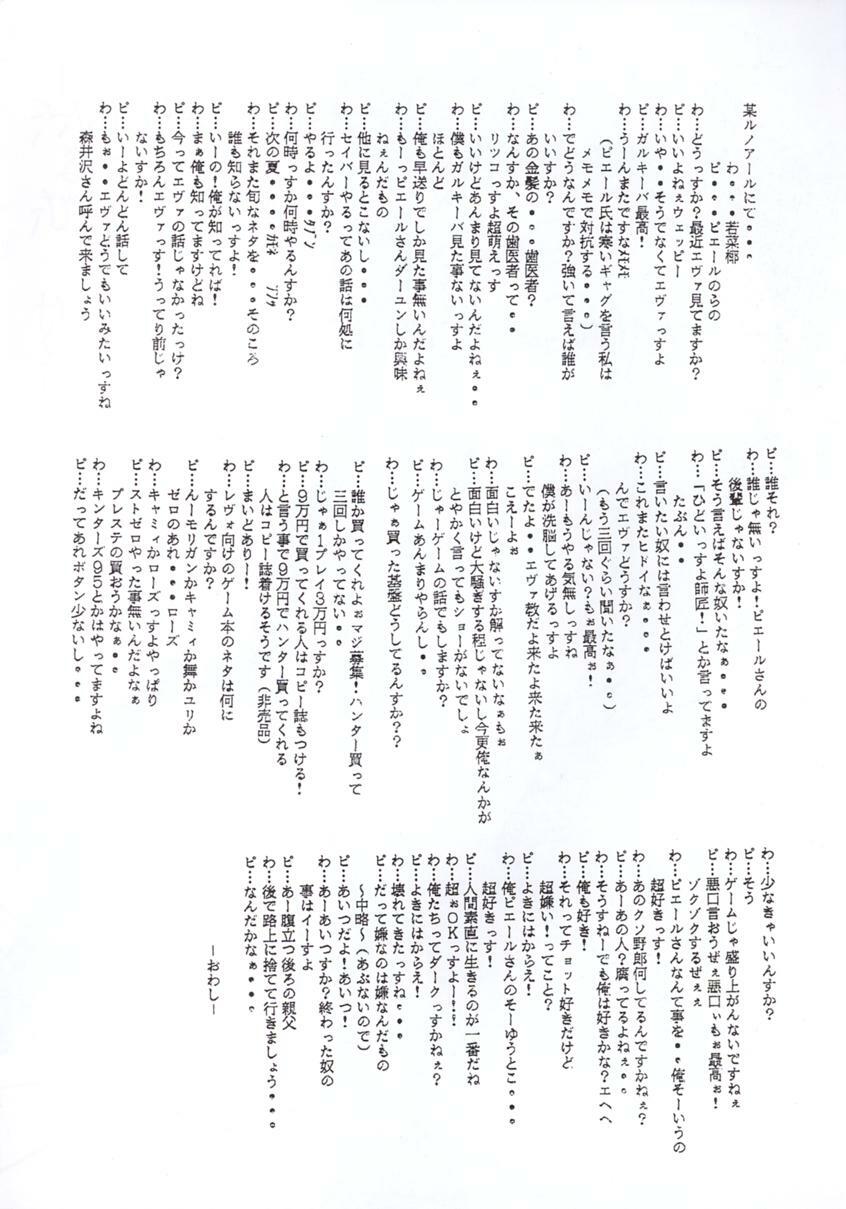 某ルノアールにて・・・
わ・・・若菜椰
ピ・・・ピエールのらの
わ…どうっすか？最近エヴァ見てますか？
ピ…いいよねぇウェッピー
わ…いや・・そうでなくてエヴァっすよ
ピ…ガルキーバ最高！
わ…うーんまたですなﾒﾓﾒﾓ
（ピエール氏は寒いギャグを言う私は
メモメモで対抗する・・・）
わ…でどうなんですか？強いて言えば誰が
いいすか？
ピ…あの金髪の・・・歯医者？
わ…なんすか、その歯医者って・・
リツコっすよ超萌えっす
ピ…いいけどあんまり見てないんだよねぇ・・
わ…僕もガルキーバ見た事ないっすよ
ほとんど
ピ…俺も早送りでしか見た事無いんだよねぇ
わ…もーっピエールさんダーユンしか興味
ねぇんだもの
ピ…他に見るとこないし・・・
わ…セイバーやるってあの話は何処に
行ったんすか？
ピ…やるよ・・・ﾀﾌﾞﾝ
わ…何時っすか何時やるんすか？
ピ…次の夏・・・・
わ…それまた旬なネタを・・・そのころ
誰も知らないっすよ！
ピ…いーの！俺が知ってれば！
わ…まぁ俺も知ってますけどね
ピ…今ってエヴァの話じゃなかったっけ？
わ…もちろんエヴァっす！うってり前じゃ
ないすか！
ピ…いーよどんどん話して
わ…もぉ・・エヴァどうでもいいみたいっすね
森井沢さん呼んで来ましょう
ピ…誰それ？
わ…誰じゃ無いっすよ！ピエールさんの
後輩じゃないすか！
ピ…そう言えばそんな奴いたなぁ・・・
わ…「ひどいっすよ師匠！」とか言ってますよ
たぶん・・
ピ…言いたい奴には言わせとけばいいよ
わ…これまたヒドイなぁ・・・
んでエヴァどうすか？
（もう三回ぐらい聞いたなぁ・・）
ピ…いーんじゃない？もぉ最高ぉ！
わ…あーもうやる気無しっすね
僕が洗脳してあげるっすよ
ピ…でたよ・・エヴァ教だよ来たよ来た来たぁ
こえーよぉ
わ…面白いじゃないすか解ってないなぁもぉ
ピ…面白いけど大騒ぎする程じゃないし今更俺なんかが
とやかく言ってもショーがないでしょ
わ…じゃーゲームの話でもしますか？
ピ…ゲームあんまりやらんし・・
わ…じゃぁ買った基盤どうしてるんすか？？
ピ…誰か買ってくれよぉマジ募集！ハンター買って
三回しかやってない・・
わ…じゃぁ１プレイ３万円っすか？
ピ…９万円で買ってくれる人はコピー誌もつける！
わ…と言う事で９万円でハンター買ってくれる
人はコピー誌着けるそうです（非売品）
ピ…まいどありー！！
わ…レヴォ向けのゲーム本のネタは何に
するんですか？
ピ…んーモリガンかキャミィか舞かユリか
ゼロのあれ・・・ローズ
わ…キャミィかローズっすよやっぱり
ピ…ストゼロやった事無いんだよなぁ
プレステの買おうかなぁ・・
わ…キンターズ９５とかはやってますよね
ピ…だってあれボタン少ないし・・・
わ…少なきゃいいんすか？
ピ…そう
わ…ゲームじゃ盛り上がんないですねぇ
ピ…悪口言おうぜぇ悪口ぃもぉ最高ぉ！
ゾクゾクするぜぇぇ
わ…ピエールさんなんて事を・・俺そーいうの
超好きっす！
わ…あのクソ野郎何してるんですかねぇ？
ピ…あーあの人？腐ってるよねぇ・・
わ…そうすねーでも俺は好きかな？エヘへ
ピ…俺も好き！
わ…それってチョット好きだけど
超嫌い！ってこと？
ピ…よきにはからえ！
わ…俺ピエールさんのそーゆうとこ・・・
超好きっす！
ピ…人間素直に生きるのが一番だね
わ…超ぉＯＫっすよー！！
わ…俺たちってダークっすかねぇ？
ピ…よきにはからえ！
わ…壊れてきたっすね・・・
ピ…だって嫌なのは嫌なんだもの
～中略～（あぶないので）
ピ…あいつだよ！あいつ！
わ…あーあいつすか？終わった奴の
事はイーすよ
ピ…あー腹立つ後ろの親父
わ…後で路上に捨てて行きましょう・・・
ピ…なんだかなぁ・・・
－おわし－